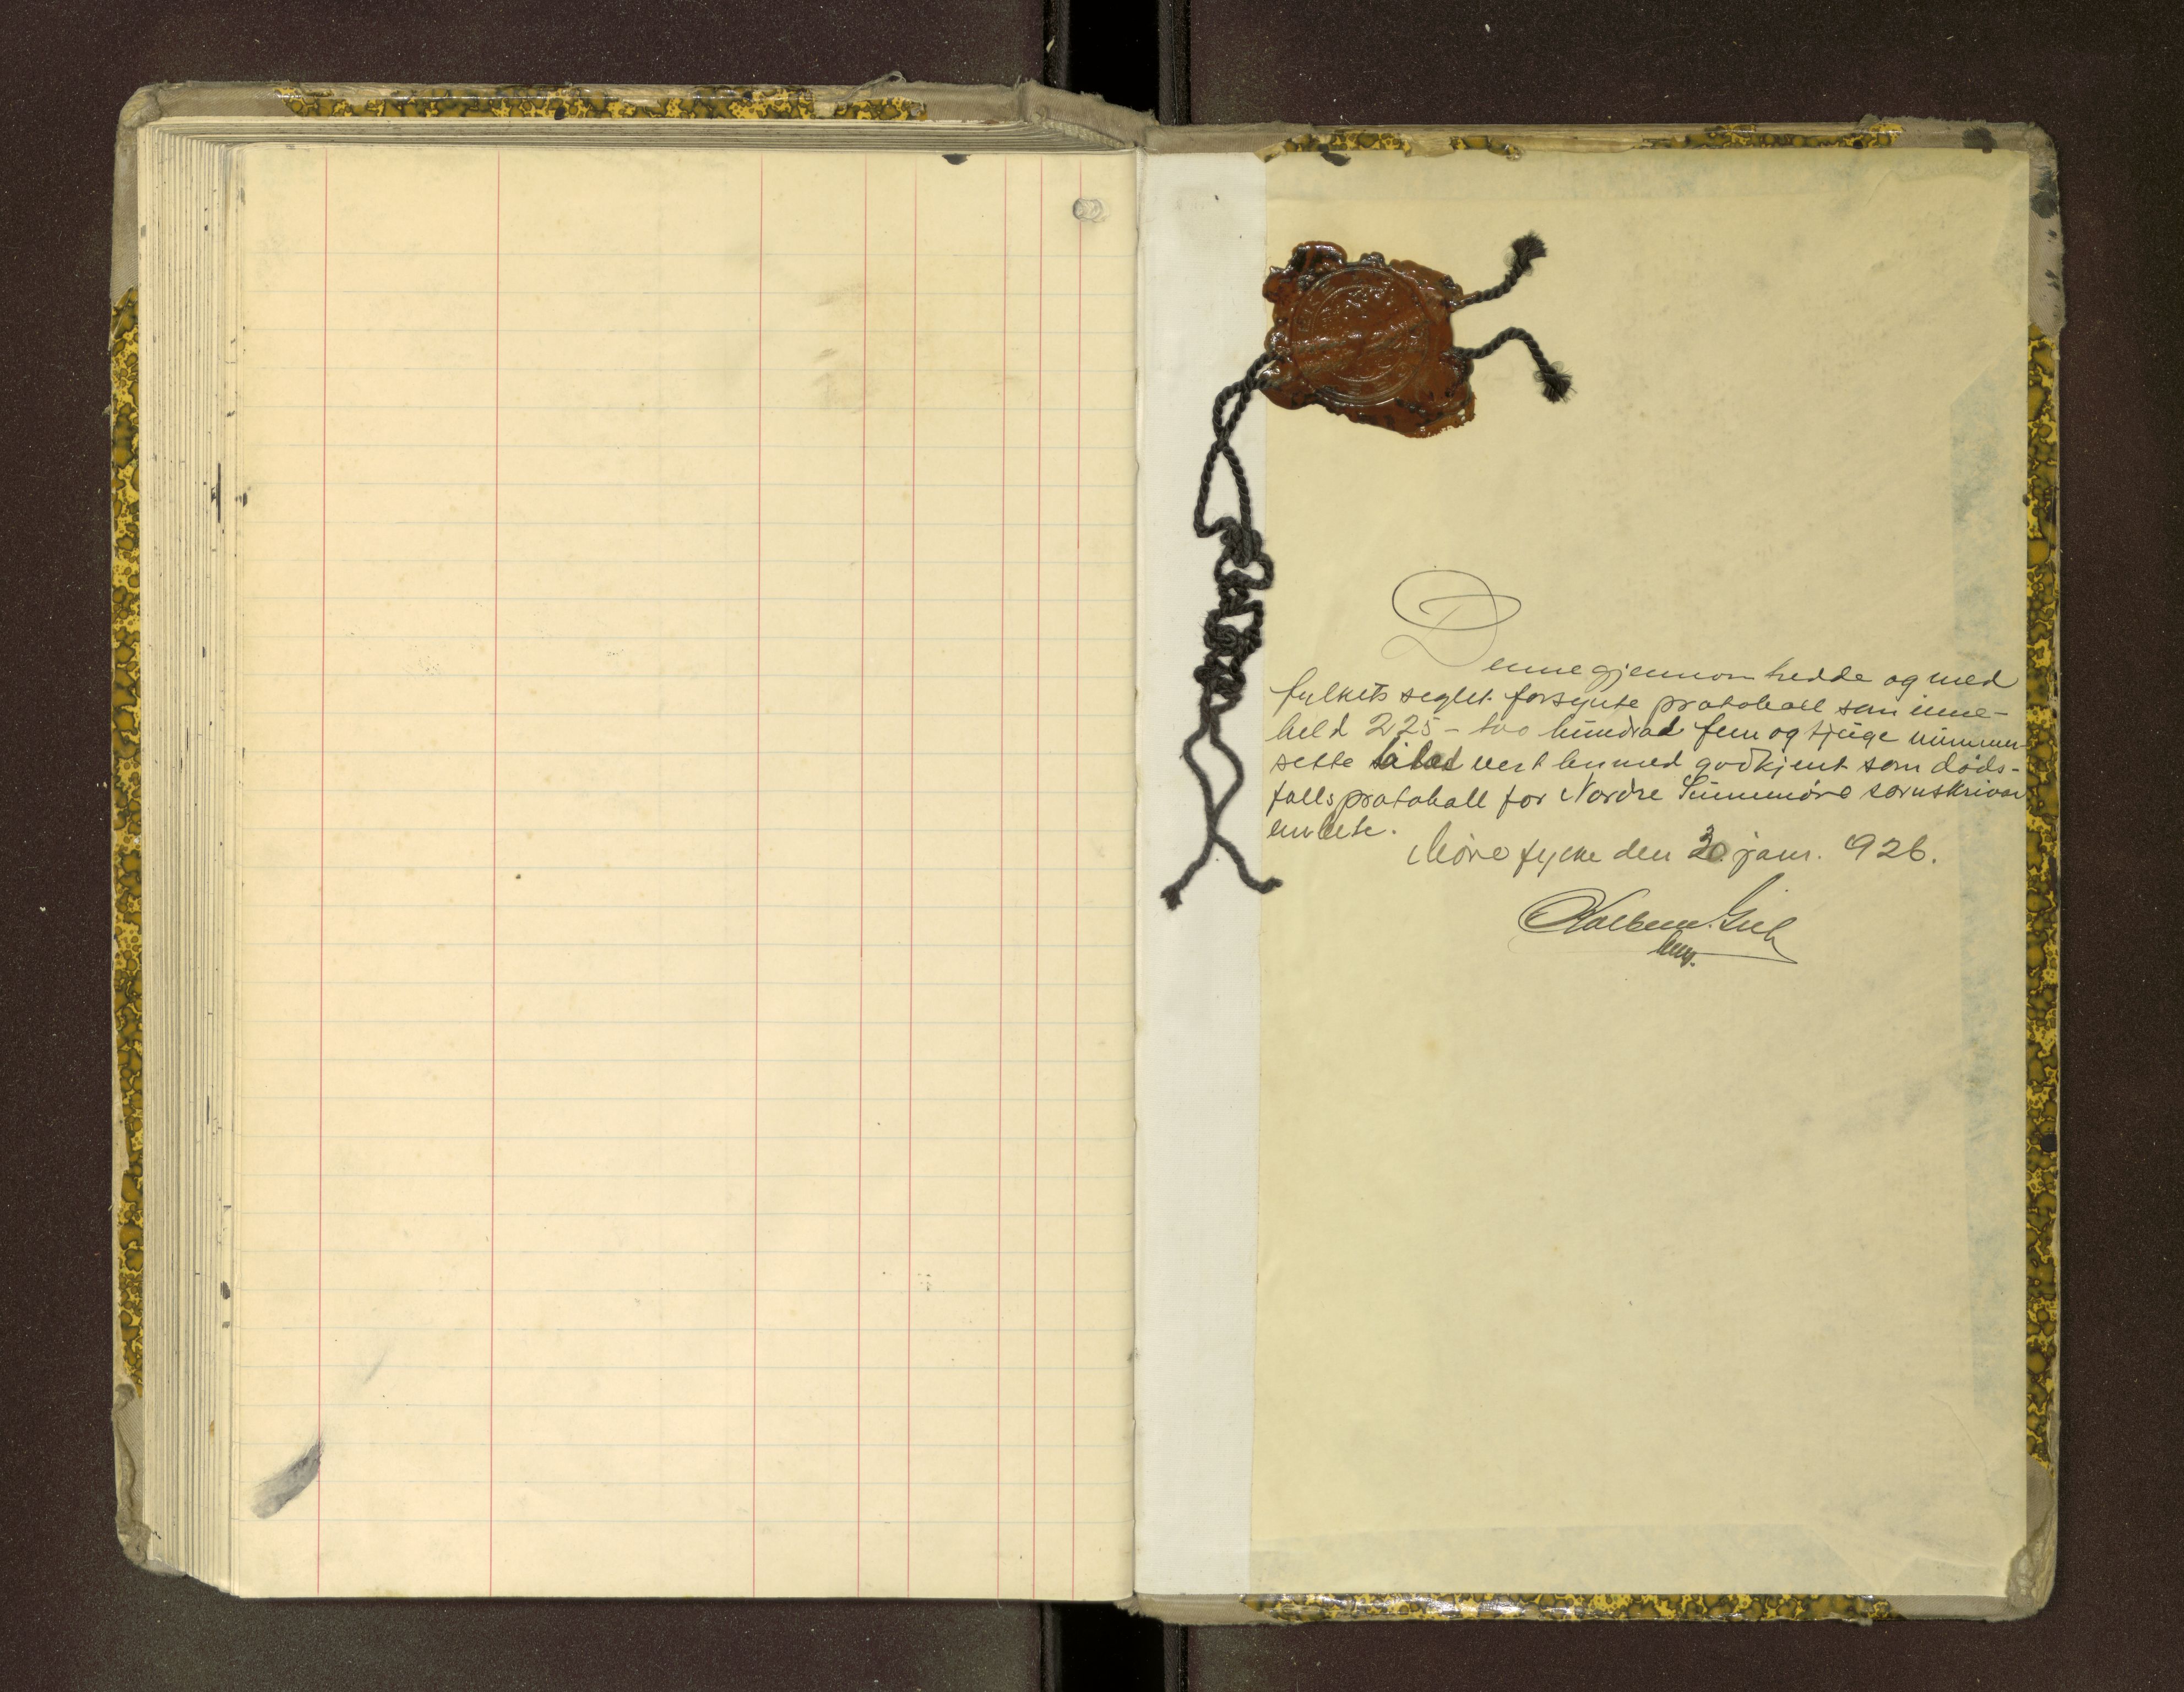 Denne gjennomtredde og med
fylkets seglet forsynte protokoll som inne-
held 225 - two hundrad fem og tjuge nummer-
sette sider vert hermed godkjent som døds-
fallsprotokoll for Nordre Sunnmøre sornskrivar
embete.
Møre fylke den 30. janr. 1926.